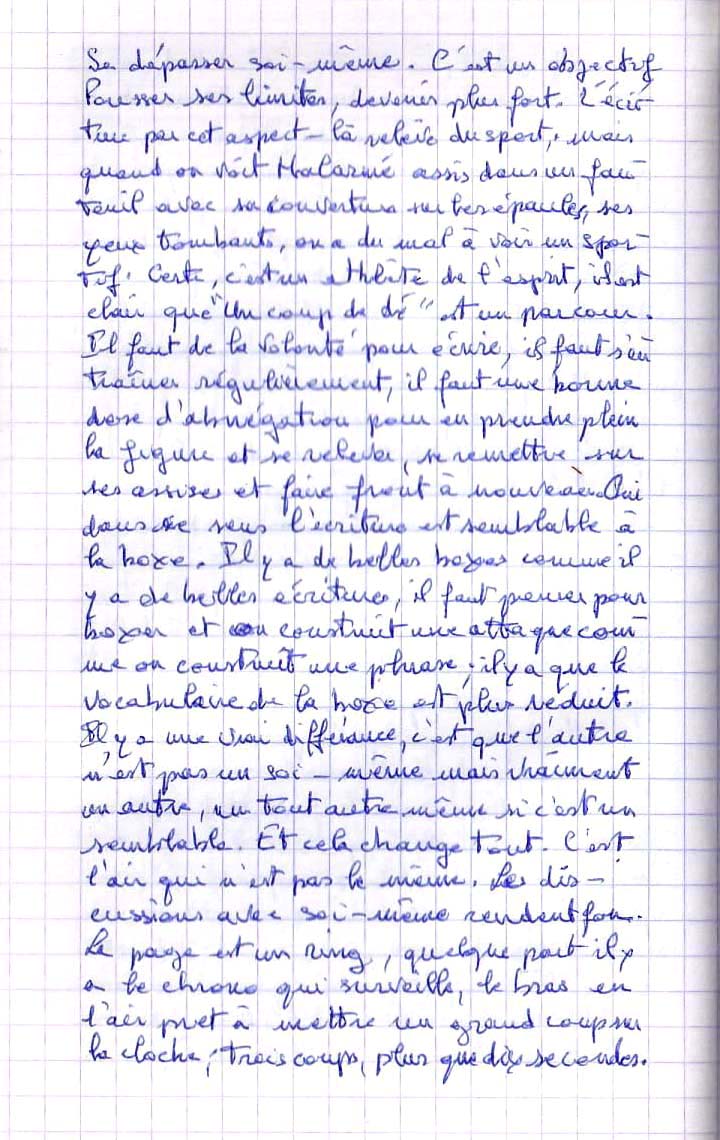 Se dépasser soi-même. C'est un objectif
Pousser ses limites, devenir plus fort. L'écri-
ture par cet aspect-là relève du sport, mais
quand on voit Malarmé assis dans un fau-
teuil avec sa couverture sur les épaules, ses
yeux tombants, on a du mal à voir un spor-
tif. Certe, c'est un athlète de l'esprit, il est
clair que "Un coup de dé" est un parcour.
Il faut de la volonté pour écrire, il faut s'en
traîner régulièrement, il faut une bonne
dose d'abnégation pour en prendre plein
la figure et se relever, se remettre sur
ses assises et faire front à nouveau. Oui
dans ce sens l'écriture est semblable à
la boxe. Il y a de belles boxes comme il
y a de belles écritures, il faut penser pour
boxer et on construit une attaque com
me on construit une phrase ; il y a que le
vocabulaire de la boxe est plus réduit.
Il y a une vrai différance, c'est que l'autre
n'est pas un soi-même mais vraiment
un autre, un tout autre même si c'est un
semblable. Et cela change tout. C'est
l'air qui n'est pas le même. Les dis-
cussions avec soi-même rendent fou.
La page est un ring, quelque part il y
a le chrono qui surveille, le bras en
l'air pret à mettre un grand coup sur
la cloche ; trois coups, plus que dix secondes.